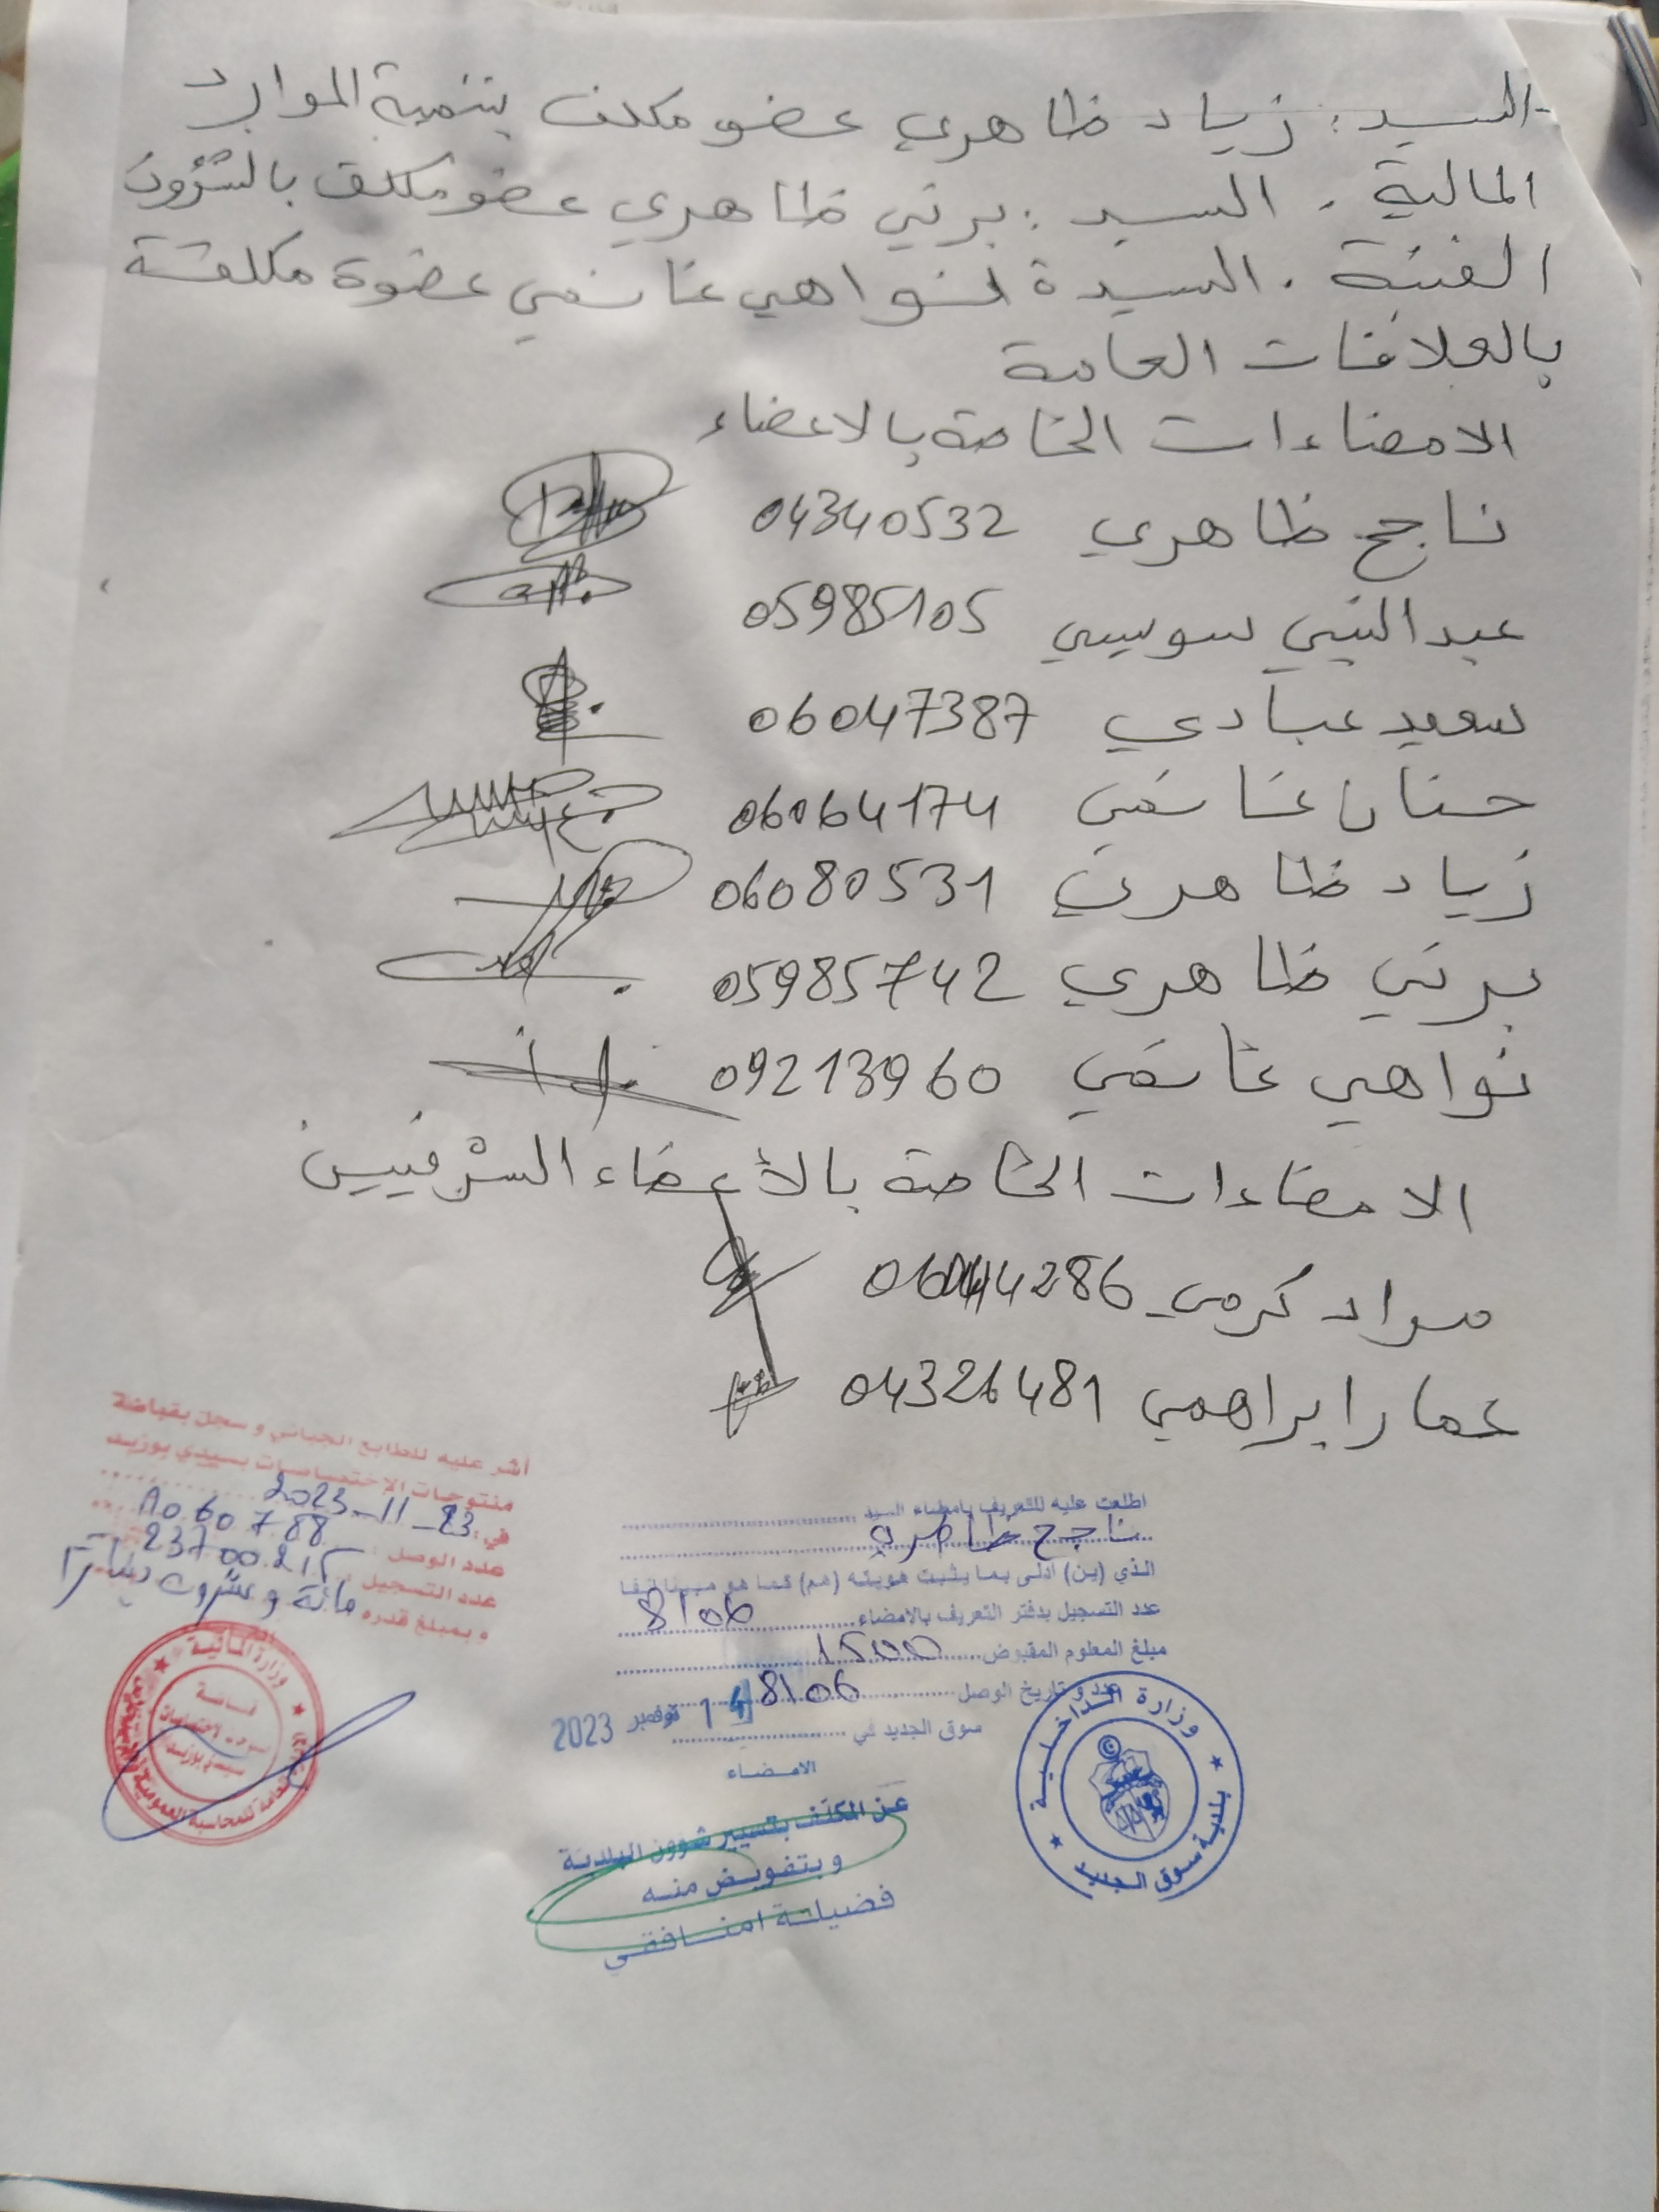 -السيد: زياد ظاهري عضو مكلف بتنمية الموارد
المالية. السيد: برني ظاهري عضو مكلف بالشؤون
الفنية. السيدة نواهي غانمي عضوة مكلفة
بالعلاقات العامة
الامضاءات الخاصة بالاعضاء
ناجح ظاهري 04340532
عبد النبي سويسي 05985105
سعيد عبادي 06047387
حنان غانمي 06064174
زياد ظاهري 06080531
برني ظاهري 05985742
نواهي غانمي 09213960
الامضاءات الخاصة بالأعضاء الشرفيين
مراد كرمي 286
عمار ابراهمي 04326481
أشر عليه للطابع الجبائي و سجل بقباضة
منتوجات الإختصاصات بسيدي بوزيد
في: 23-11-2023
عدد الوصل:
عدد التسجيل: 23700215
و بمبلغ قدره مائة وعشرون دينارا
وزارة المالية
اطلعت عليه للتعريف بإمضاء السيد
ناجح ظاهري
الذي (ين) أدلى بما يثبت هويته (هم) كما هو مبين أنفا
عدد التسجيل بدفتر التعريف بالامضاء 8106
مبلغ المعلوم المقبوض 1500
عدد و تاريخ الوصل 8106
سوق الجديد في 14 نوفمبر 2023
الامضاء
عن المكلف بتسيير شؤون البلدية
وبتفويض منه
فضيلة امنافقي
وزارة الداخلية
بلدية سوق الجديد